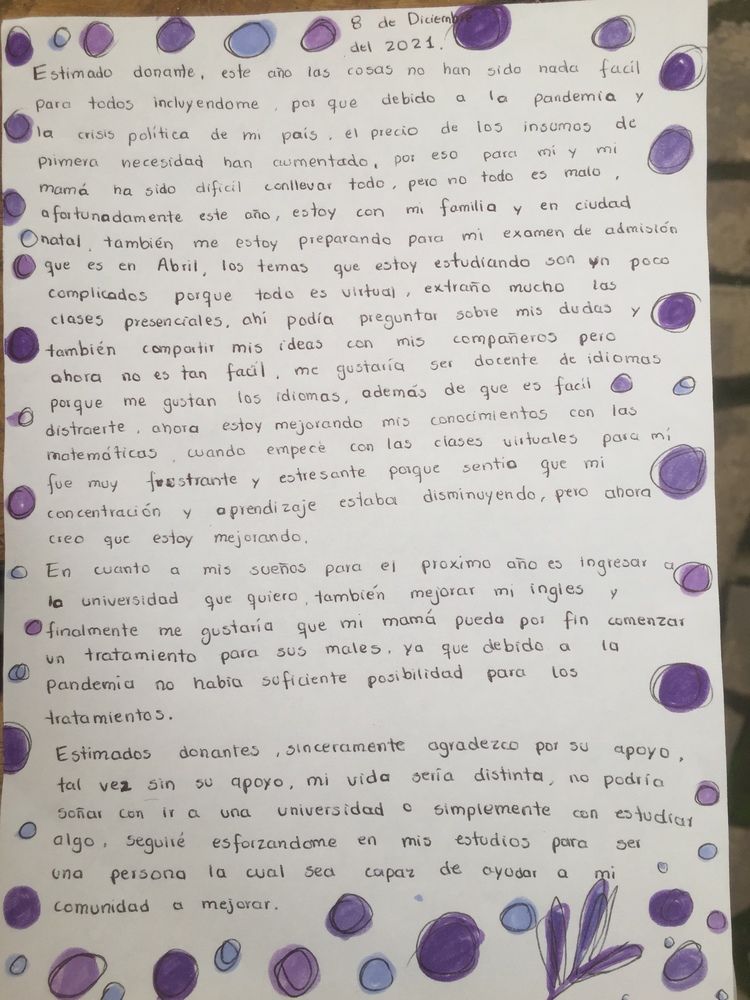 8 de Diciembre
del 2021.
Estimado donante, este año las cosas no han sido nada facil
para todos incluyendome, por que debido a la pandemia y
la crisis política de mi país, el precio de los insumos de
primera necesidad han aumentado, por eso para mí y mi
mamá ha sido dificil conllevar todo, pero no todo es malo,
afortunadamente este año, estoy con mi familia y en ciudad
natal, también me estoy preparando para mi examen de admisión
que es en Abril, los temas que estoy estudiando son un poco
complicados porque todo es virtual, extraño mucho las
clases presenciales, ahí podía preguntar sobre mis dudas y
también compartir mis ideas con mis compañeros pero
ahora no es tan facil, me gustaría ser docente de idiomas
porque me gustan los idiomas, además de que es facil
distraerte, ahora estoy mejorando mis conocimientos con las
matemáticas, cuando empecè con las clases virtuales para mí
fue muy frustrante y estresante porque sentia que mi
concentración y aprendizaje estaba disminuyendo, pero ahora
creo que estoy mejorando.
En cuanto a mis sueños para el proximo año es ingresar a
la universidad que quiero, también mejorar mi ingles y
finalmente me gustaría que mi mamá pueda por fin comenzar
un tratamiento para sus males, ya que debido a la
pandemia no habia suficiente posibilidad para los
tratamientos.
Estimados donantes, sinceramente agradezco por su apoyo,
tal vez sin su apoyo, mi vida sería distinta, no podría
soñar con ir a una universidad o simplemente con estudiar
algo, seguiré esforzandome en mis estudios para ser
una persona la cual sea capaz de ayudar a mi
comunidad a mejorar.